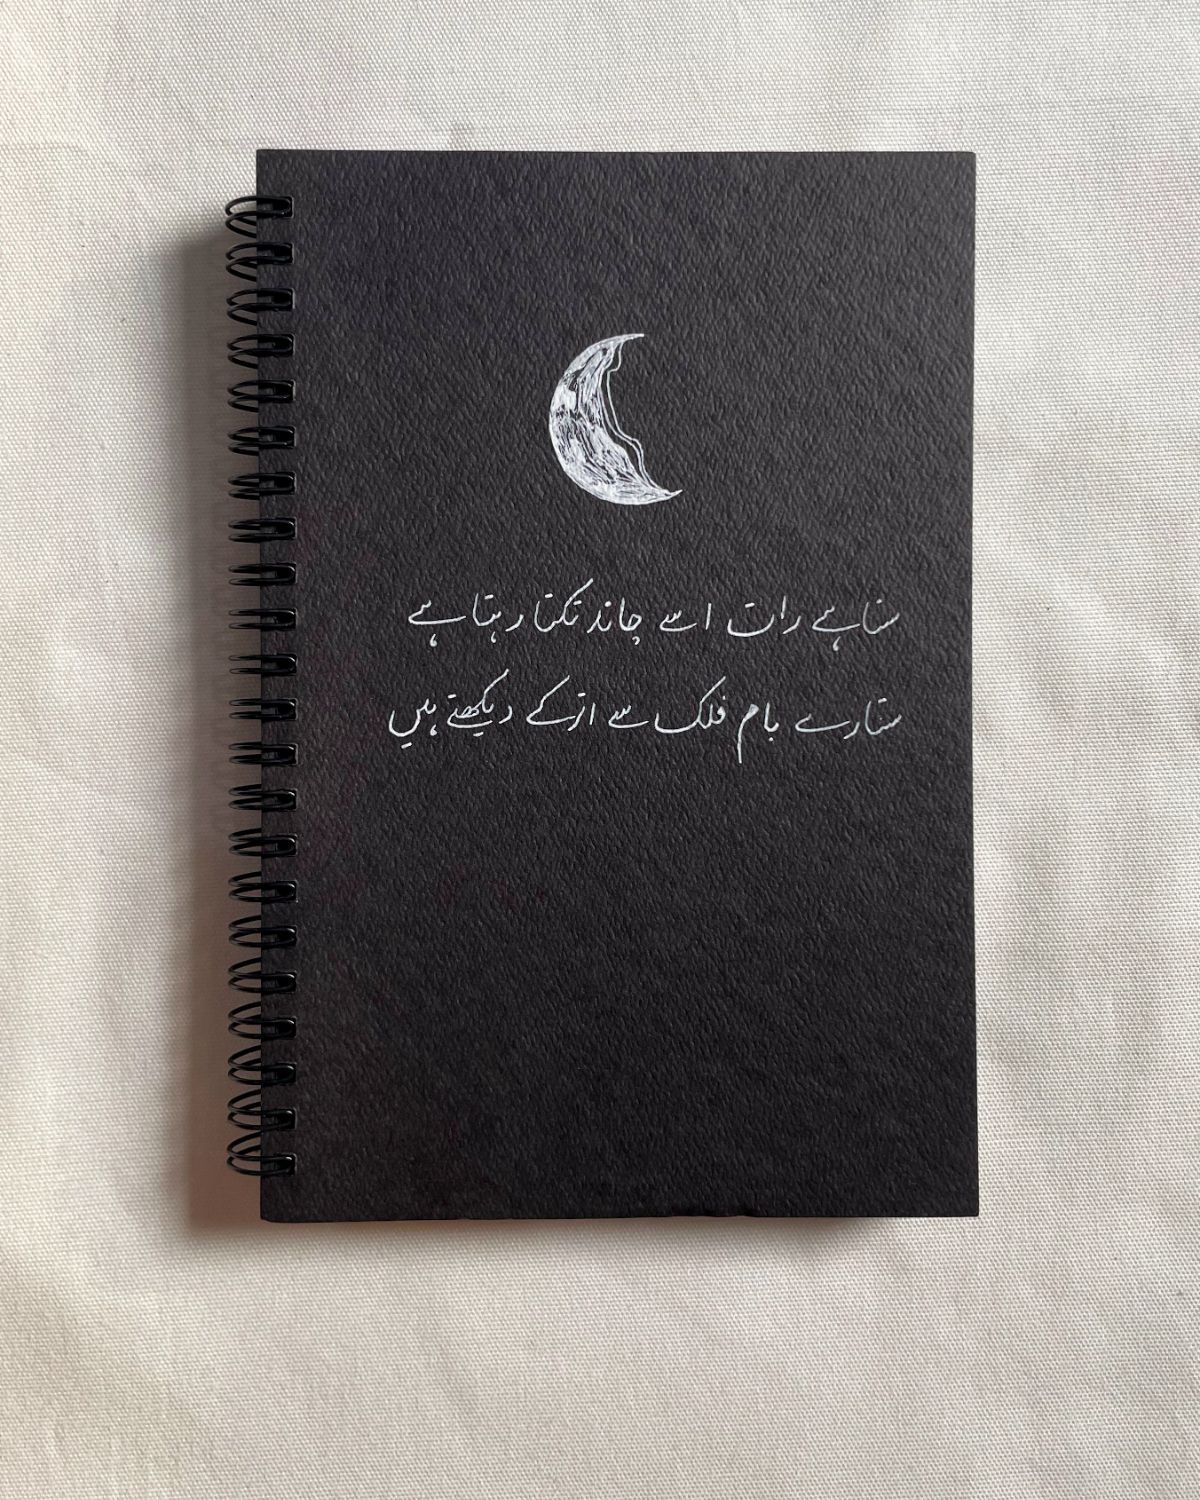 سنا ہے رات اسے چاند تکتا رہتا ہے
ستارے بام فلک سے اتر کے دیکھتے ہیں